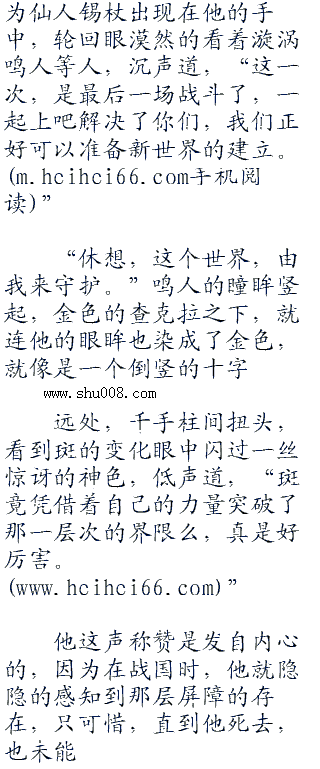 为仙人锡杖出现在他的手
中，轮回眼漠然的看着漩涡
鸣人等人，沉声道，“这一
次，是最后一场战斗了，一
起上吧解决了你们，我们正
好可以准备新世界的建立。
(m.hcihci66.com手机阅
读)”
“休想，这个世界，由
我来守护。”鸣人的瞳眸竖
起，金色的查克拉之下，就
连他的眼眸也染成了金色，
就像是一个倒竖的十字
www.shu008.com
远处，千手柱间扭头，
看到斑的变化眼中闪过一丝
惊讶的神色，低声道，“斑
竟凭借着自己的力量突破了
那一层次的界限么，真是好
厉害。
(www.hcihci66.com)”
他这声称赞是发自内心
的，因为在战国时，他就隐
隐的感知到那层屏障的存
在，只可惜，直到他死去，
也未能